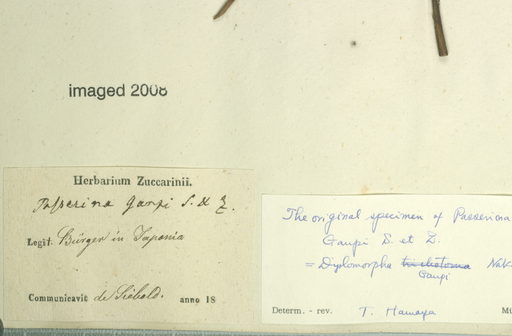 imaged 2008
Herbarium Zuccarinii.
Passerina Ganpi S. & Z.
Legit. Bürger in Japonia
Communicavit de Siebold. anno 18
The original specimen of Passerina
Ganpi S. et Z.
= Diplomorpha trichotoma Nak
Ganpi
Determ. - rev. T. Hamaya Mü